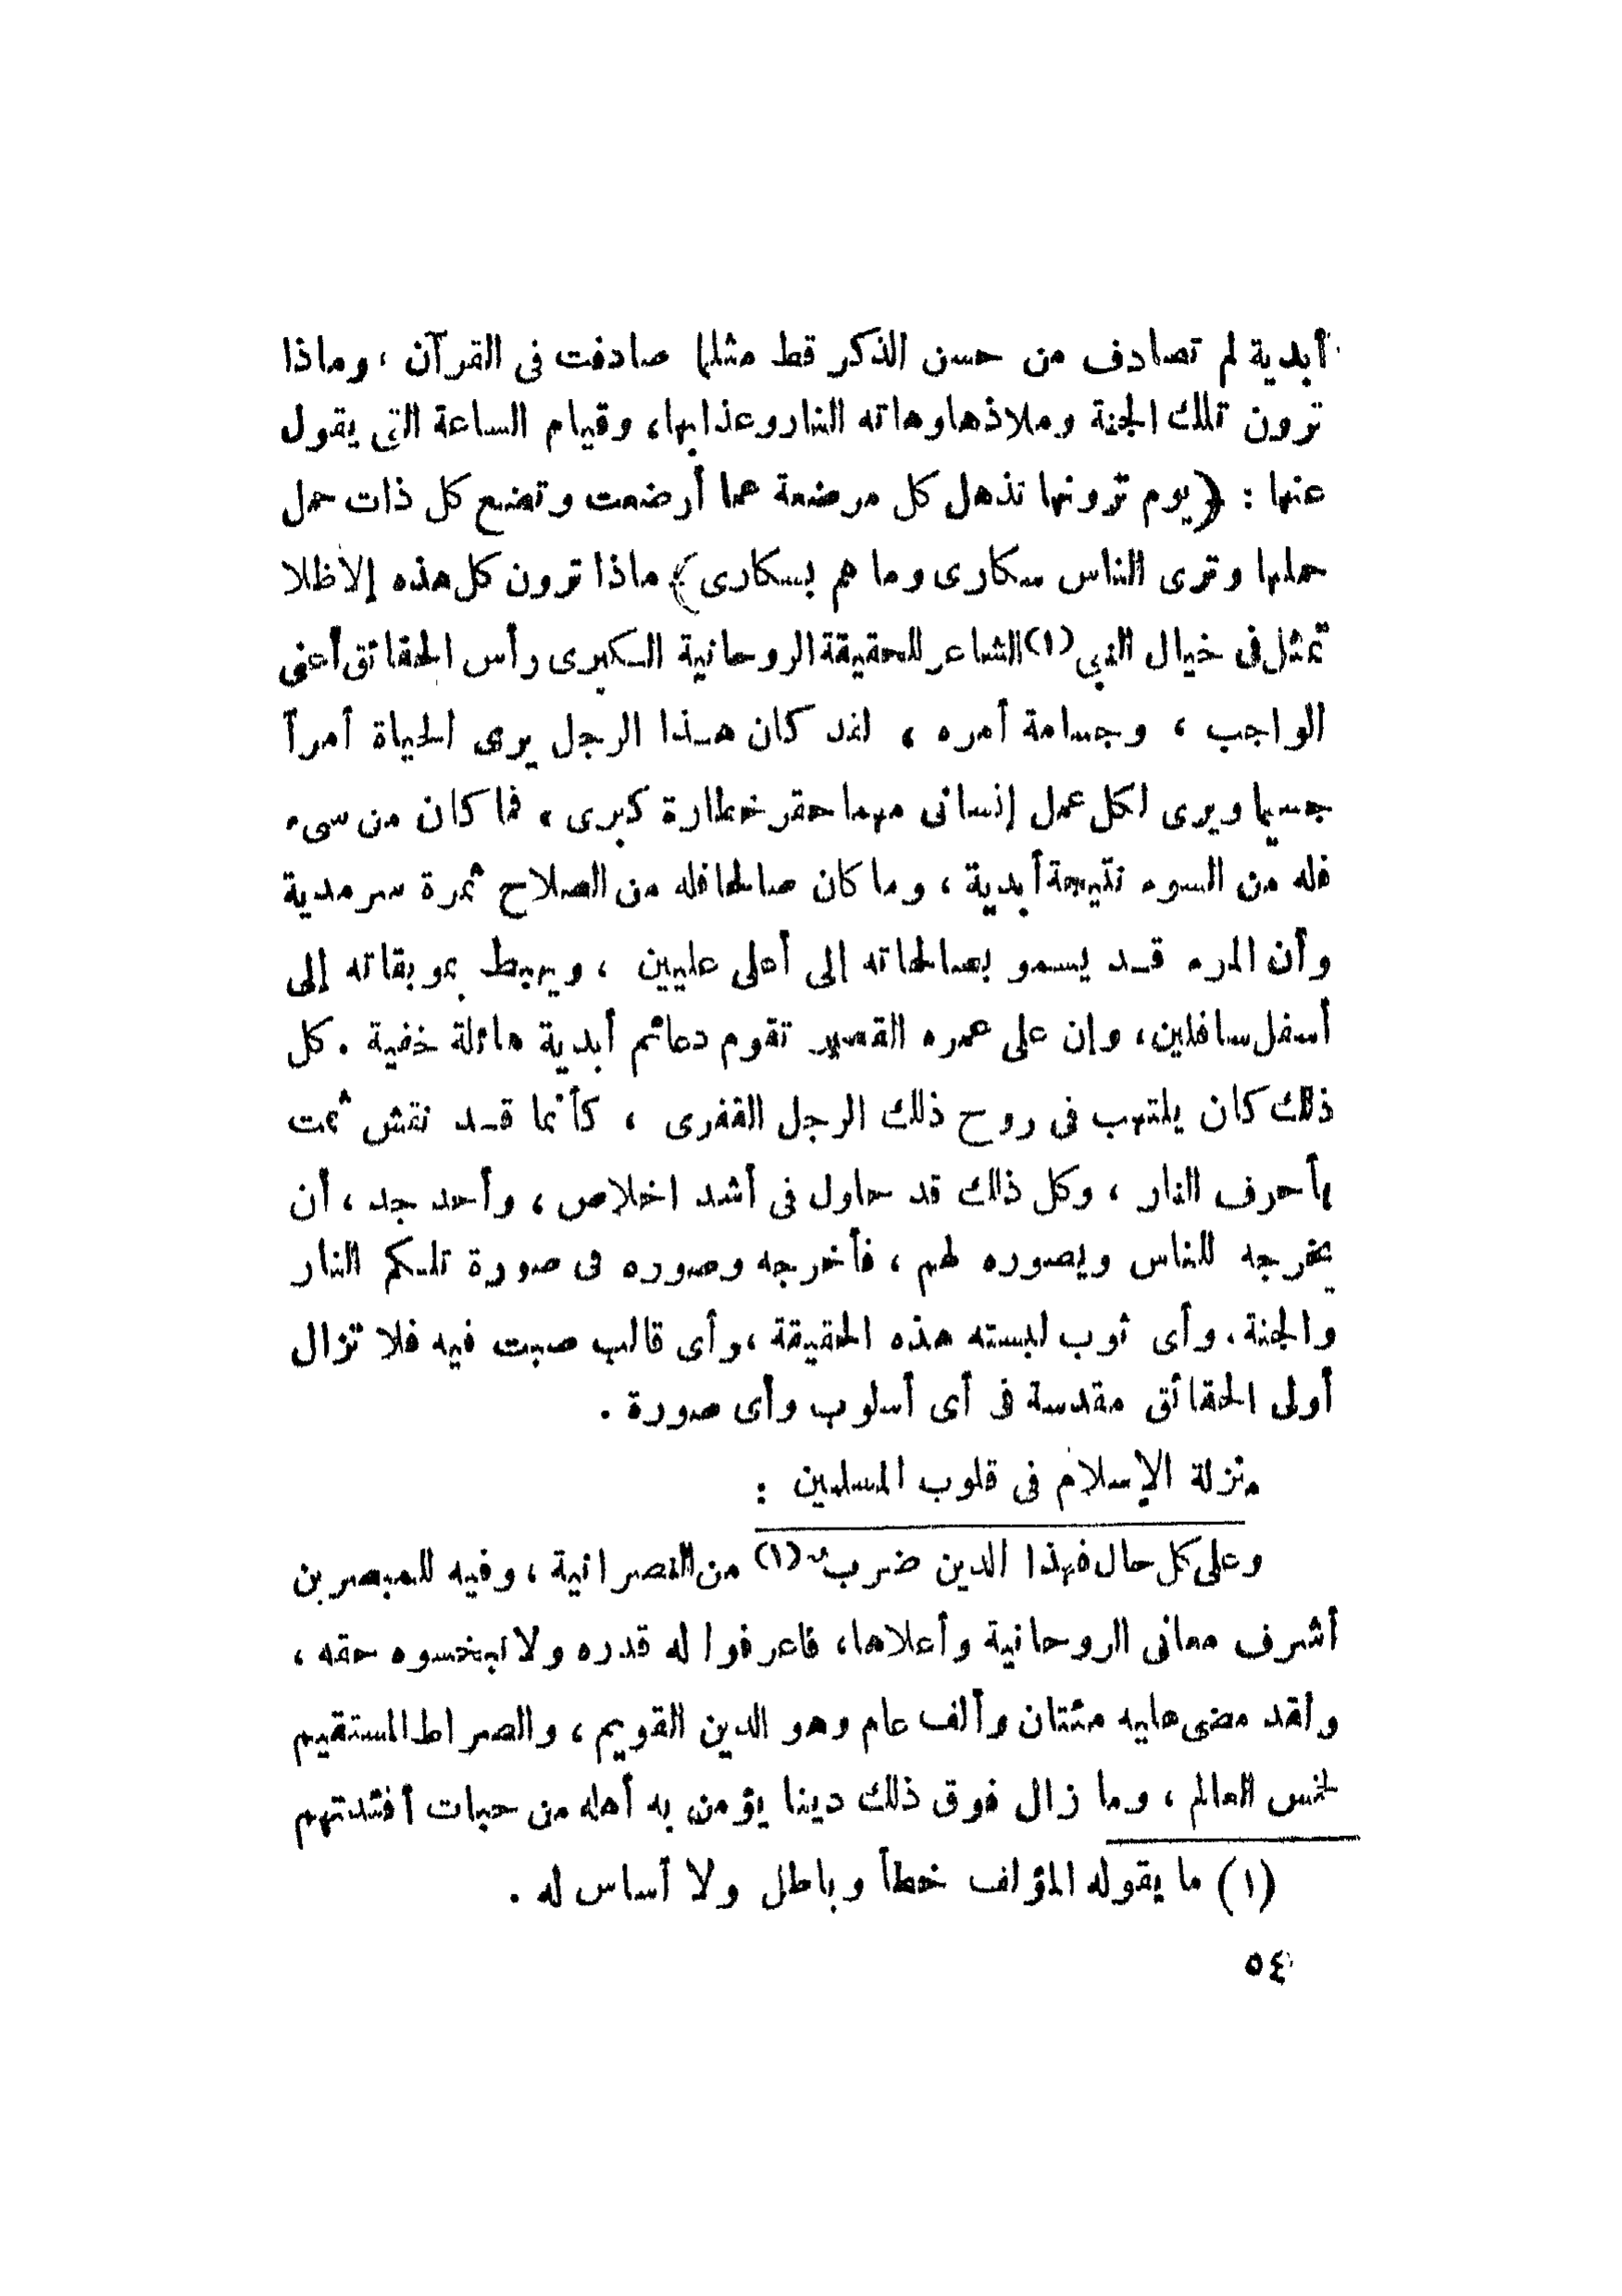 أبدية لم تصادف من حسن الذكر قط مثلما صادفت فى القرآن ، وماذا
ترون تلك الجنة وملاذها وهاته النار وعذابها، وقيام الساعة التى يقول
عنها : ﴿ يوم ترونها تذهل كل مرضعة عما أرضعت وتضع كل ذات حمل
حملها وترى الناس سكارى وما هم بسكارى ﴾ ماذا ترون كل هذه إلا ظلا
تمثل فى خيال النبي (١) الشاعر للحقيقة الروحانية الكبرى رأس الحقائق أعنى
الواجب ، وجسامة أمره ، لقد كان هذا الرجل يرى الحياة أمراً
جسيما ويرى لكل عمل إنسانى مهما حقر خطارة كبرى ، فما كان من سىء
فله من السوء نتيجة أبدية ، وما كان صالحا فله من الصلاح ثمرة سرمدية
وأن المرء قد يسمو بصالحاته إلى أعلى عليين ، ويهبط بموبقاته إلى
أسفل سافلين ، وإن على عمره القصير تقوم دعائم أبدية هائلة خفية . كل
ذلك كان يلتهب فى روح ذلك الرجل القفرى ، كأنما قد نقش ثمت
بأحرف النار ، وكل ذلك قد حاول فى أشد اخلاص ، وأحد جد ، أن
يخرجه للناس ويصوره لهم ، فأخرجه وصوره فى صورة تلكم النار
والجنة . وأى ثوب لبسته هذه الحقيقة ، وأى قالب صبت فيه فلا تزال
أولى الحقائق مقدسة فى أى أسلوب وأى صورة .
منزلة الإسلام فى قلوب المسلمين :
وعلى كل حال فهذا الدين ضرب (١) من النصرانية ، وفيه للمبصرين
أشرف معانى الروحانية وأعلاها ، فاعرفوا له قدره ولا تبخسوه حقه ،
ولقد مضى عليه مئتان وألف عام وهو الدين القويم ، والصراط المستقيم
لخمس العالم ، وما زال فوق ذلك دينا يؤمن به أهله من حبات أفئدتهم
(١) ما يقوله المؤلف خطأ وباطل ولا أساس له .
٥٤